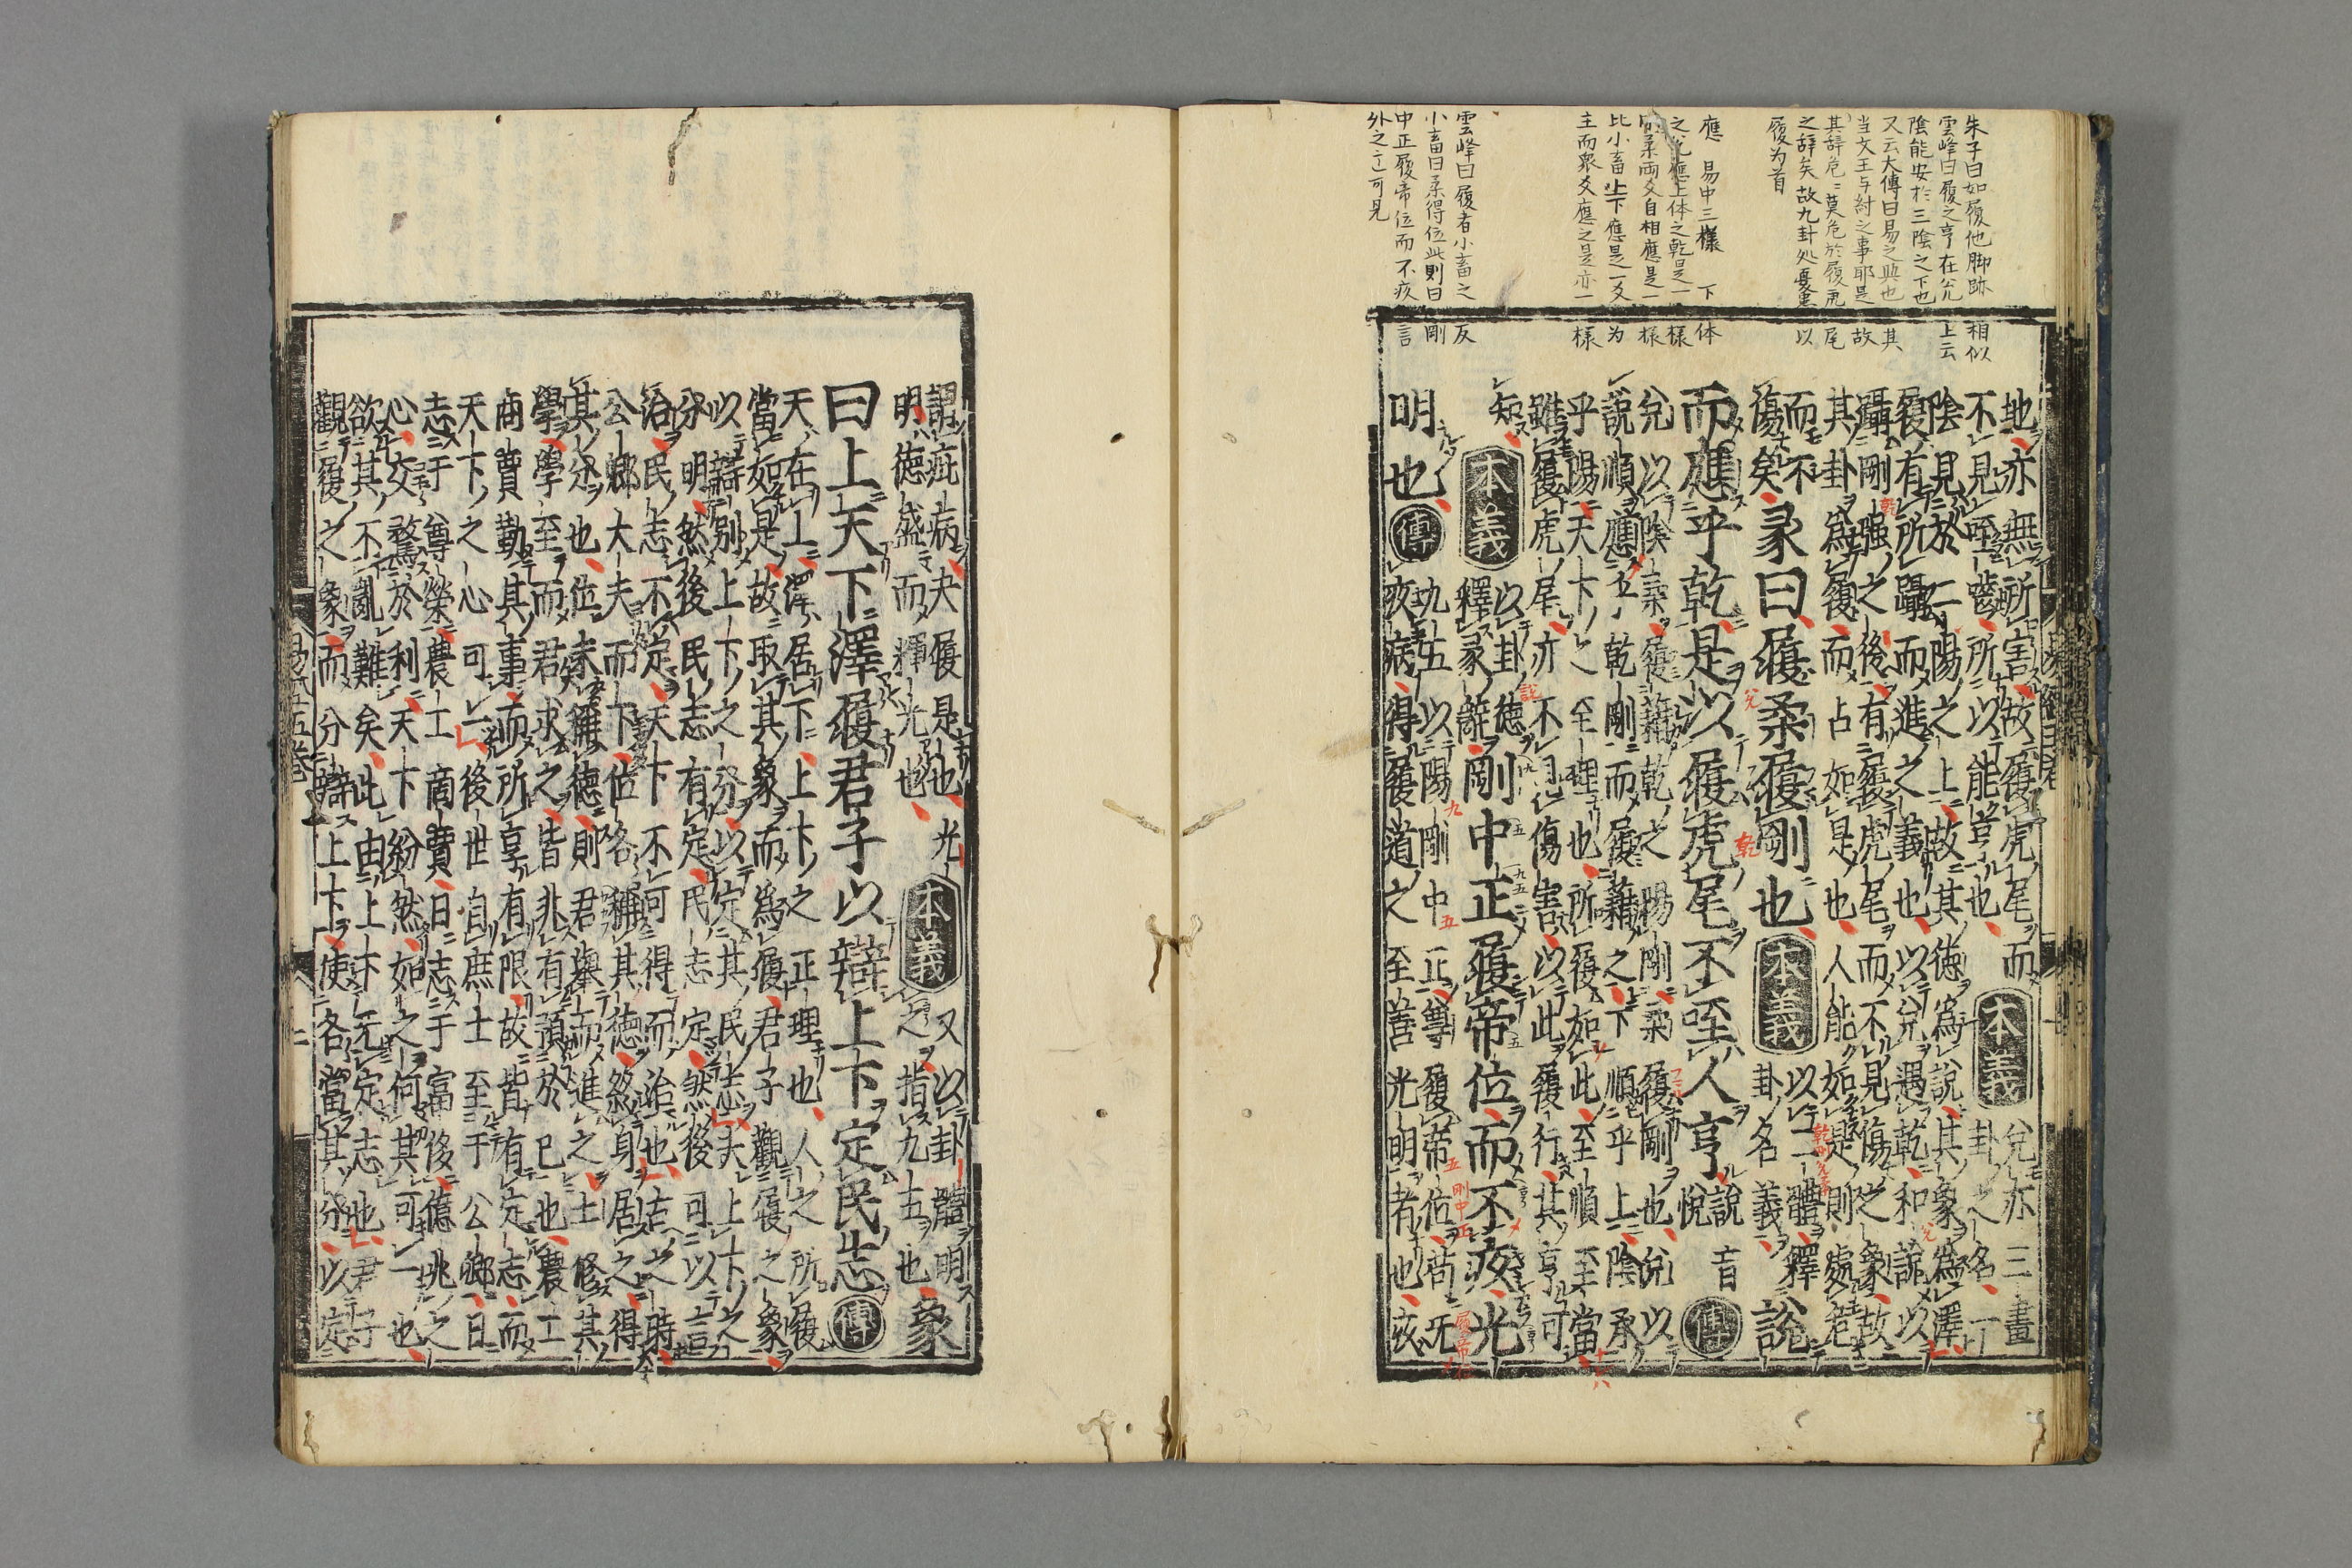 朱子曰如履他脚跡相似
雲峰曰履之亨在兌上云
陰能安於三陰之下也
又云大傳曰易之興也其
當文王与紂之事耶是故
其辞危〻莫危於履虎尾
之辞矣故九卦処憂患以
履为首
應 易中三樣 下体
之兌應上体之乾是一樣
剛柔兩爻自相應是一樣
比小畜上下應是一爻为
主而衆爻應之是亦一樣
雲峰曰履者小畜之反
小畜曰柔得位此則曰剛
中正履帝位而不疚言
外之 可見
地亦無所害故履虎尾而
不見咥嚙所以能亨也 本義 兌亦三畫卦之名一
陰見於二陽之上故其德為說其象為澤
履有所躡而進之義也以兌遇乾和說以
躡剛強之後有履虎尾而不見傷之象故
其卦為履而占如是也人能如是則處危
而不傷矣彖曰履柔履剛也 本義 以二體釋卦名義 說
而應乎乾是以履虎尾不咥人亨 說音悅 傳
兌以陰柔履藉乾之陽剛柔履剛也兌以
說順應乎乾剛而履藉之下順乎上陰承
乎陽天下之至理也所履如此至順至當
雖履虎尾亦不見傷害以此履行其亨可
知 本義 以卦德釋彖辭 剛中正履帝位而不疚光
明也 傳 九五以陽剛中正尊履帝位苟无
疚病得履道之至善光明者也疚
謂疵病夬履是也光
明德盛而輝光也 本義 又以卦體明之指九五也 象
曰上天下澤履君子以辯上下定民志 傳
天在上澤居下上下之正理也人之所履
當如是故取其象而為履君子觀履之象
以辯別上下之分以定其民志夫上下之
分明然後民志有定民志定然後可以言
治民志不定天下不可得而治也古之時
公卿大夫而下位各稱其德終身居之得
其分也位未稱德則君舉而進之士修其
學學至而君求之皆非有預於己也農工
商賈勤其事而所享有限故皆有定志而
天下之心可一後世自庶士至于公卿日
志于尊榮農工商賈日志于富侈億兆之
心交騖於利天下紛然如之何其可一也
欲其不亂難矣此由上下无定志也君子
觀履之象而分辯上下使各當其分以定